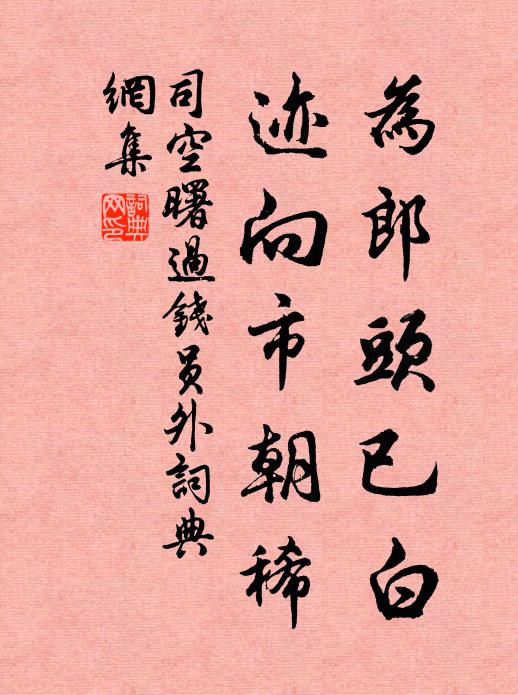 為郎頭已白
迹向市朝稀
司空曙過錢員外詞典
網集
詞典
网印